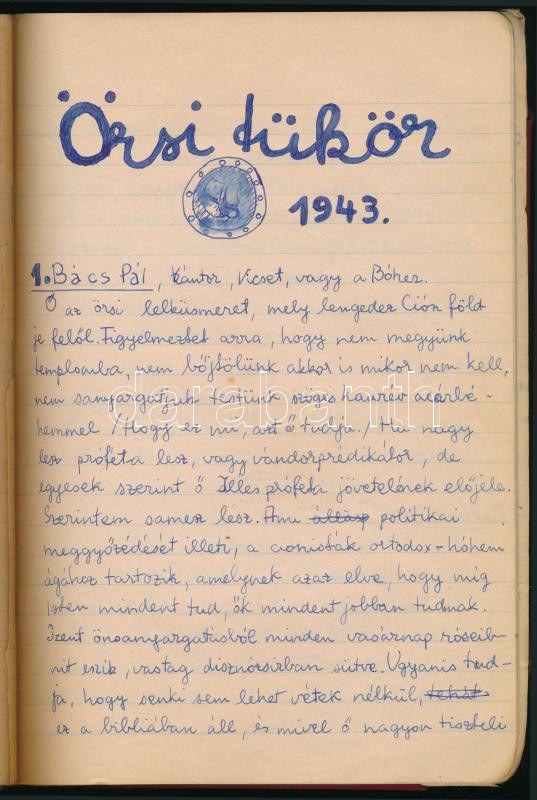 Örsi tükör
1943.
1. Bács Pál, kántor, Vicset, vagy a Bóher.
Ő az örsi lelkiismeret, mely lengedez Cion föld
je felől. Figyelmeztet arra, hogy nem megyünk
templomba, nem böjtölünk akkor is mikor nem kell,
nem sanyargatjuk testünk szöges acérbé-
hemmel /Hogy ez mi, azt ő tudja./ Ha nagy
lesz próféta lesz, vagy vándorprédikátor, de
egyesek szerint ő Illes próféta jövetelének előjele.
Szerintem samesz lesz. Ami állásp politikai
meggyőződését illeti, a cionisták ortodox-hóhem
ágához tartozik, amelynek azaz elve, hogy míg
Isten mindent tud, ők mindent jobban tudnak.
Ezért önsanyargatásból minden vasárnap róseib-
nit eszik, vastag disznózsírban sütve. Ugyanis tud-
ja, hogy senki sem lehet vétek nélkül, tehát
ez a bibliában áll, és mivel ő nagyon tiszteli
darabanth